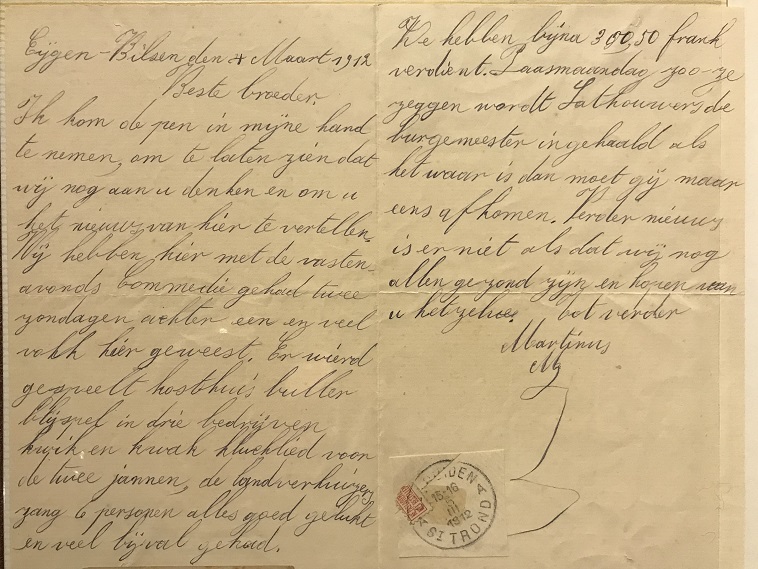 Eijgen-Bilsen den 4 Maart 1912
Beste broeder.
Ik kom de pen in mijne hand
te nemen, om te laten zien dat
wij nog aan u denken en om u
het nieuws van hier te vertellen.
Wij hebben hier met de vasten-
avonds commedie gehad twee
zondagen achter een en veel
volk hier geweest. Er wierd
gespeelt kosthuis buller
blijspel in drie bedrijven
kwik en kwak klucklied voor
de twee jannen, de landverhuizers
zang 6 personen alles goed gelukt
en veel bijval gehad.
We hebben bijna 300,50 frank
verdient. Paasmaandag zoo ze
zeggen wordt Lathouwers de
burgemeester ingehaald als
het waar is dan moet gij maar
eens afkomen. Verder nieuws
is er niet als dat wij nog
allen gezond zijn en hopen van
u hetzelve. tot verder
Martinus
15-16
III
1912
ST TROND